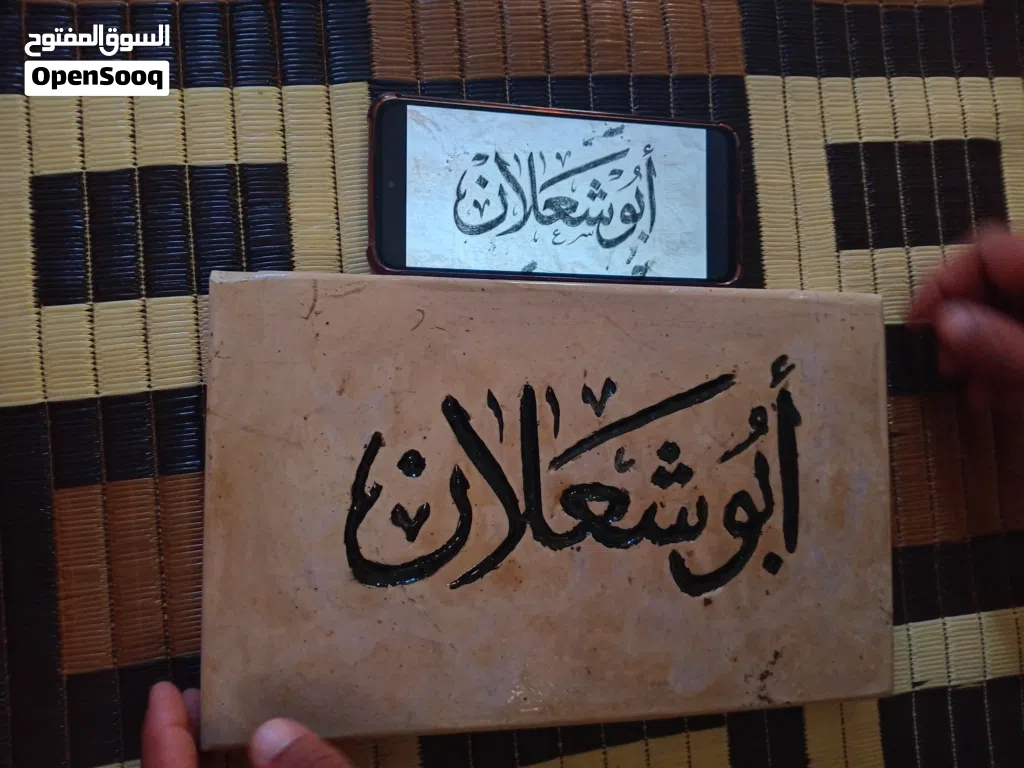 السوق المفتوح
OpenSooq
أبو شعلان
أبو شعلان